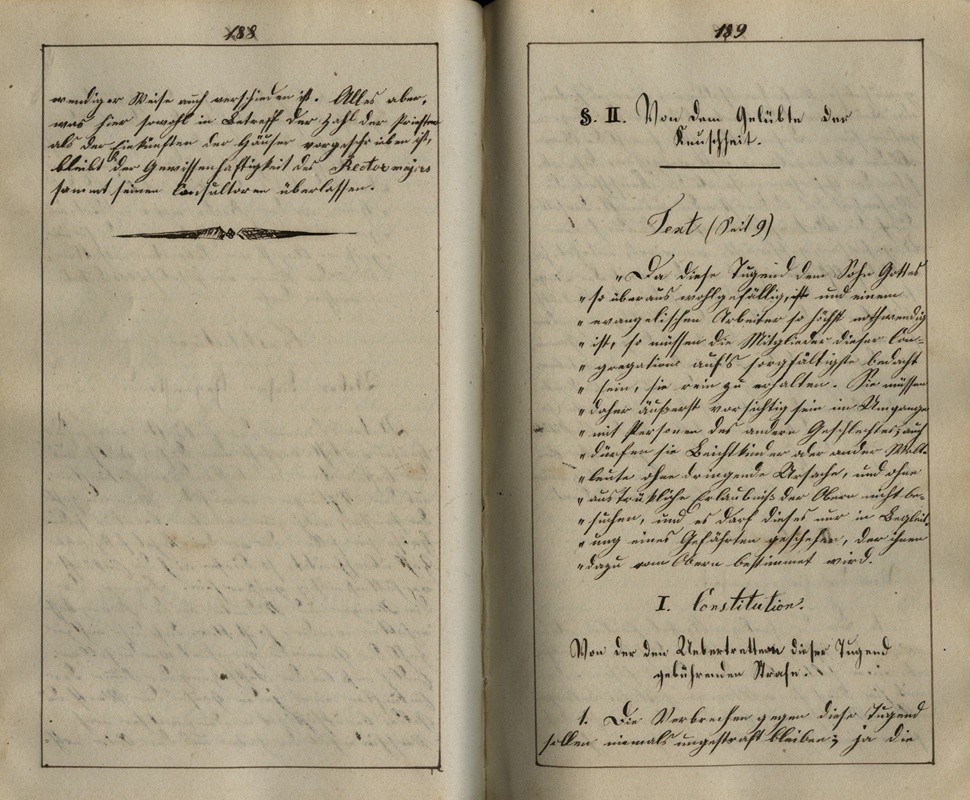 188
wendiger Weise auch verschieden ist. Alles aber,
was hier sowohl in Betreff der Zahl der Priester
als der Einkünften der Häuser vorgeschrieben ist,
bleibt der Gewissenhaftigkeit des Rectormajors
sammt seinen Consultoren überlassen.
189
§. II. Von dem Gelübte der
Keuschheit.
Text (Seit 9)
"Da diese Tugend dem Sohn Gottes
" so überaus wohlgefällig, ist und einem
" evangelischen Arbeiter so höchst nothwendig
" ist, so müssen die Mitglieder dieser Con-
" gregation auf's sorgfältigste bedacht
" sein, sie rein zu erhalten. Sie müssen
" daher äußerst vorsichtig sein im Umgange
" mit Personen des andern Geschlechtes; auch
" dürfen sie Beichtkinder oder ander Welt-
" leute ohne dringende Ursache, und ohne
" austrükliche Erlaubniß der Obern nicht be-
" suchen, und es darf dieses nur in Begleit-
" ung eines Gefährten geschehen, der ihnen
" dazu vom Obern bestimmet wird.
I. Constitution.
Von der den Uebertrettern dieser Tugend
gebührenden Strafe.
1. Die Verbrechen gegen diese Tugend
sollen niemals ungestraft bleiben; ja die